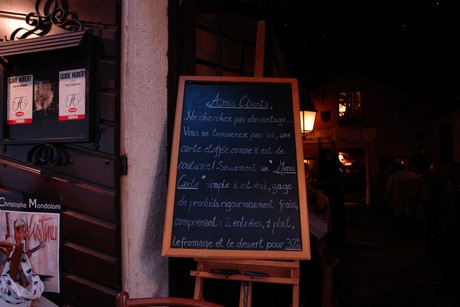 GUIDE HUBERT
GUIDE HUBERT
Christophe Mondoloni
Amis Clients,
Ne cherchez pas davantage...
Vous ne trouverez pas ici, une
carte étoffée comme il est de
coutume! Seulement un "Menu
Carte" simple il est vrai, gage
de produits rigoureusement frais,
comprenant: 2 entrées, 1 plat,
le fromage et le dessert pour